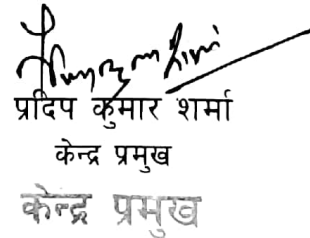 प्रदिप कुमार शर्मा
केन्द्र प्रमुख
केन्द्र प्रमुख